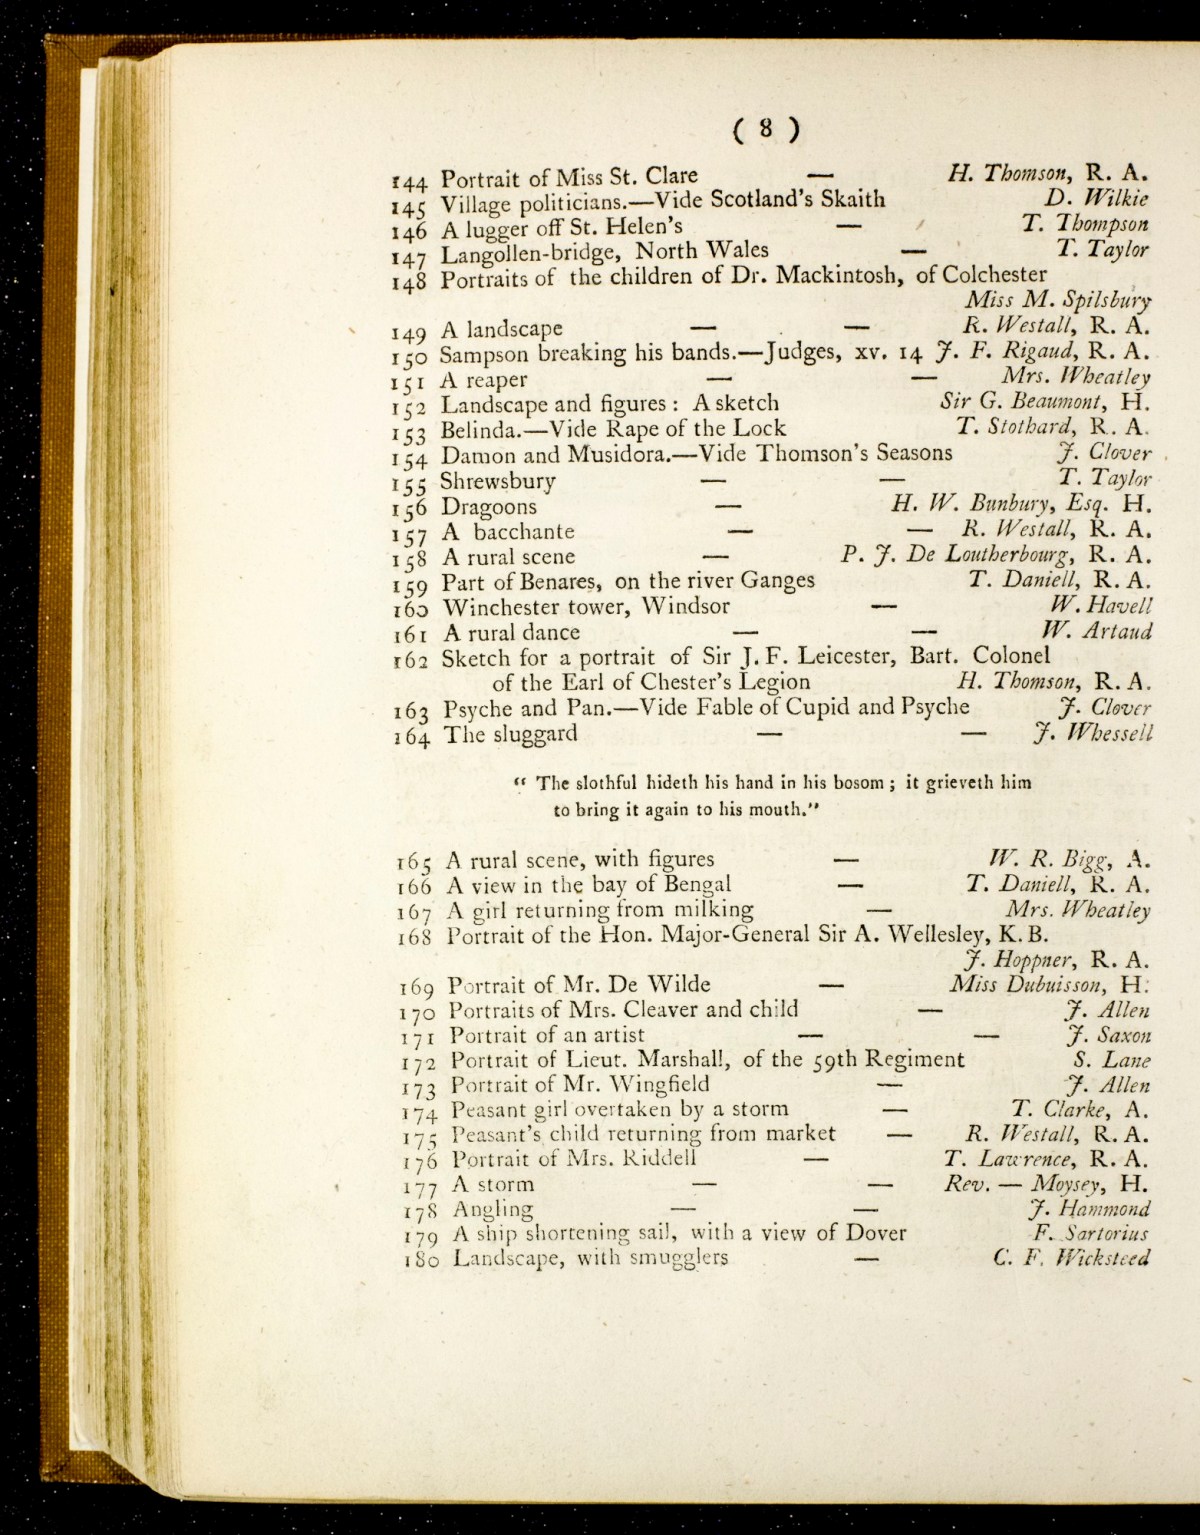 ( 8 )
144 Portrait of Miss St. Clare — H. Thomson, R. A.
145 Village politicians.—Vide Scotland's Skaith D. Wilkie
146 A lugger off St. Helen's — T. Thompson
147 Langollen-bridge, North Wales — T. Taylor
148 Portraits of the children of Dr. Mackintosh, of Colchester
Miss M. Spilsbury
149 A landscape — — R. Westall, R. A.
150 Sampson breaking his bands.—Judges, xv. 14 J. F. Rigaud, R. A.
151 A reaper — — Mrs. Wheatley
152 Landscape and figures : A sketch Sir G. Beaumont, H.
153 Belinda.—Vide Rape of the Lock T. Stothard, R. A.
154 Damon and Musidora.—Vide Thomson's Seasons J. Clover
155 Shrewsbury — — T. Taylor
156 Dragoons — H. W. Bunbury, Esq. H.
157 A bacchante — — R. Westall, R. A.
158 A rural scene — P. J. De Loutherbourg, R. A.
159 Part of Benares, on the river Ganges T. Daniell, R. A.
160 Winchester tower, Windsor — W. Havell
161 A rural dance — — W. Artaud
162 Sketch for a portrait of Sir J. F. Leicester, Bart. Colonel
of the Earl of Chester's Legion H. Thomson, R. A.
163 Psyche and Pan.—Vide Fable of Cupid and Psyche J. Clover
164 The sluggard — — J. Whessell
" The slothful hideth his hand in his bosom ; it grieveth him
to bring it again to his mouth."
165 A rural scene, with figures — W. R. Bigg, A.
166 A view in the bay of Bengal — T. Daniell, R. A.
167 A girl returning from milking — Mrs. Wheatley
168 Portrait of the Hon. Major-General Sir A. Wellesley, K. B.
J. Hoppner, R. A.
169 Portrait of Mr. De Wilde — Miss Dubuisson, H.
170 Portraits of Mrs. Cleaver and child — J. Allen
171 Portrait of an artist — — J. Saxon
172 Portrait of Lieut. Marshall, of the 59th Regiment S. Lane
173 Portrait of Mr. Wingfield — J. Allen
174 Peasant girl overtaken by a storm — T. Clarke, A.
175 Peasant's child returning from market — R. Westall, R. A.
176 Portrait of Mrs. Riddell — T. Lawrence, R. A.
177 A storm — — Rev. — Moysey, H.
178 Angling — — J. Hammond
179 A ship shortening sail, with a view of Dover F. Sartorius
180 Landscape, with smugglers — C. F. Wicksteed